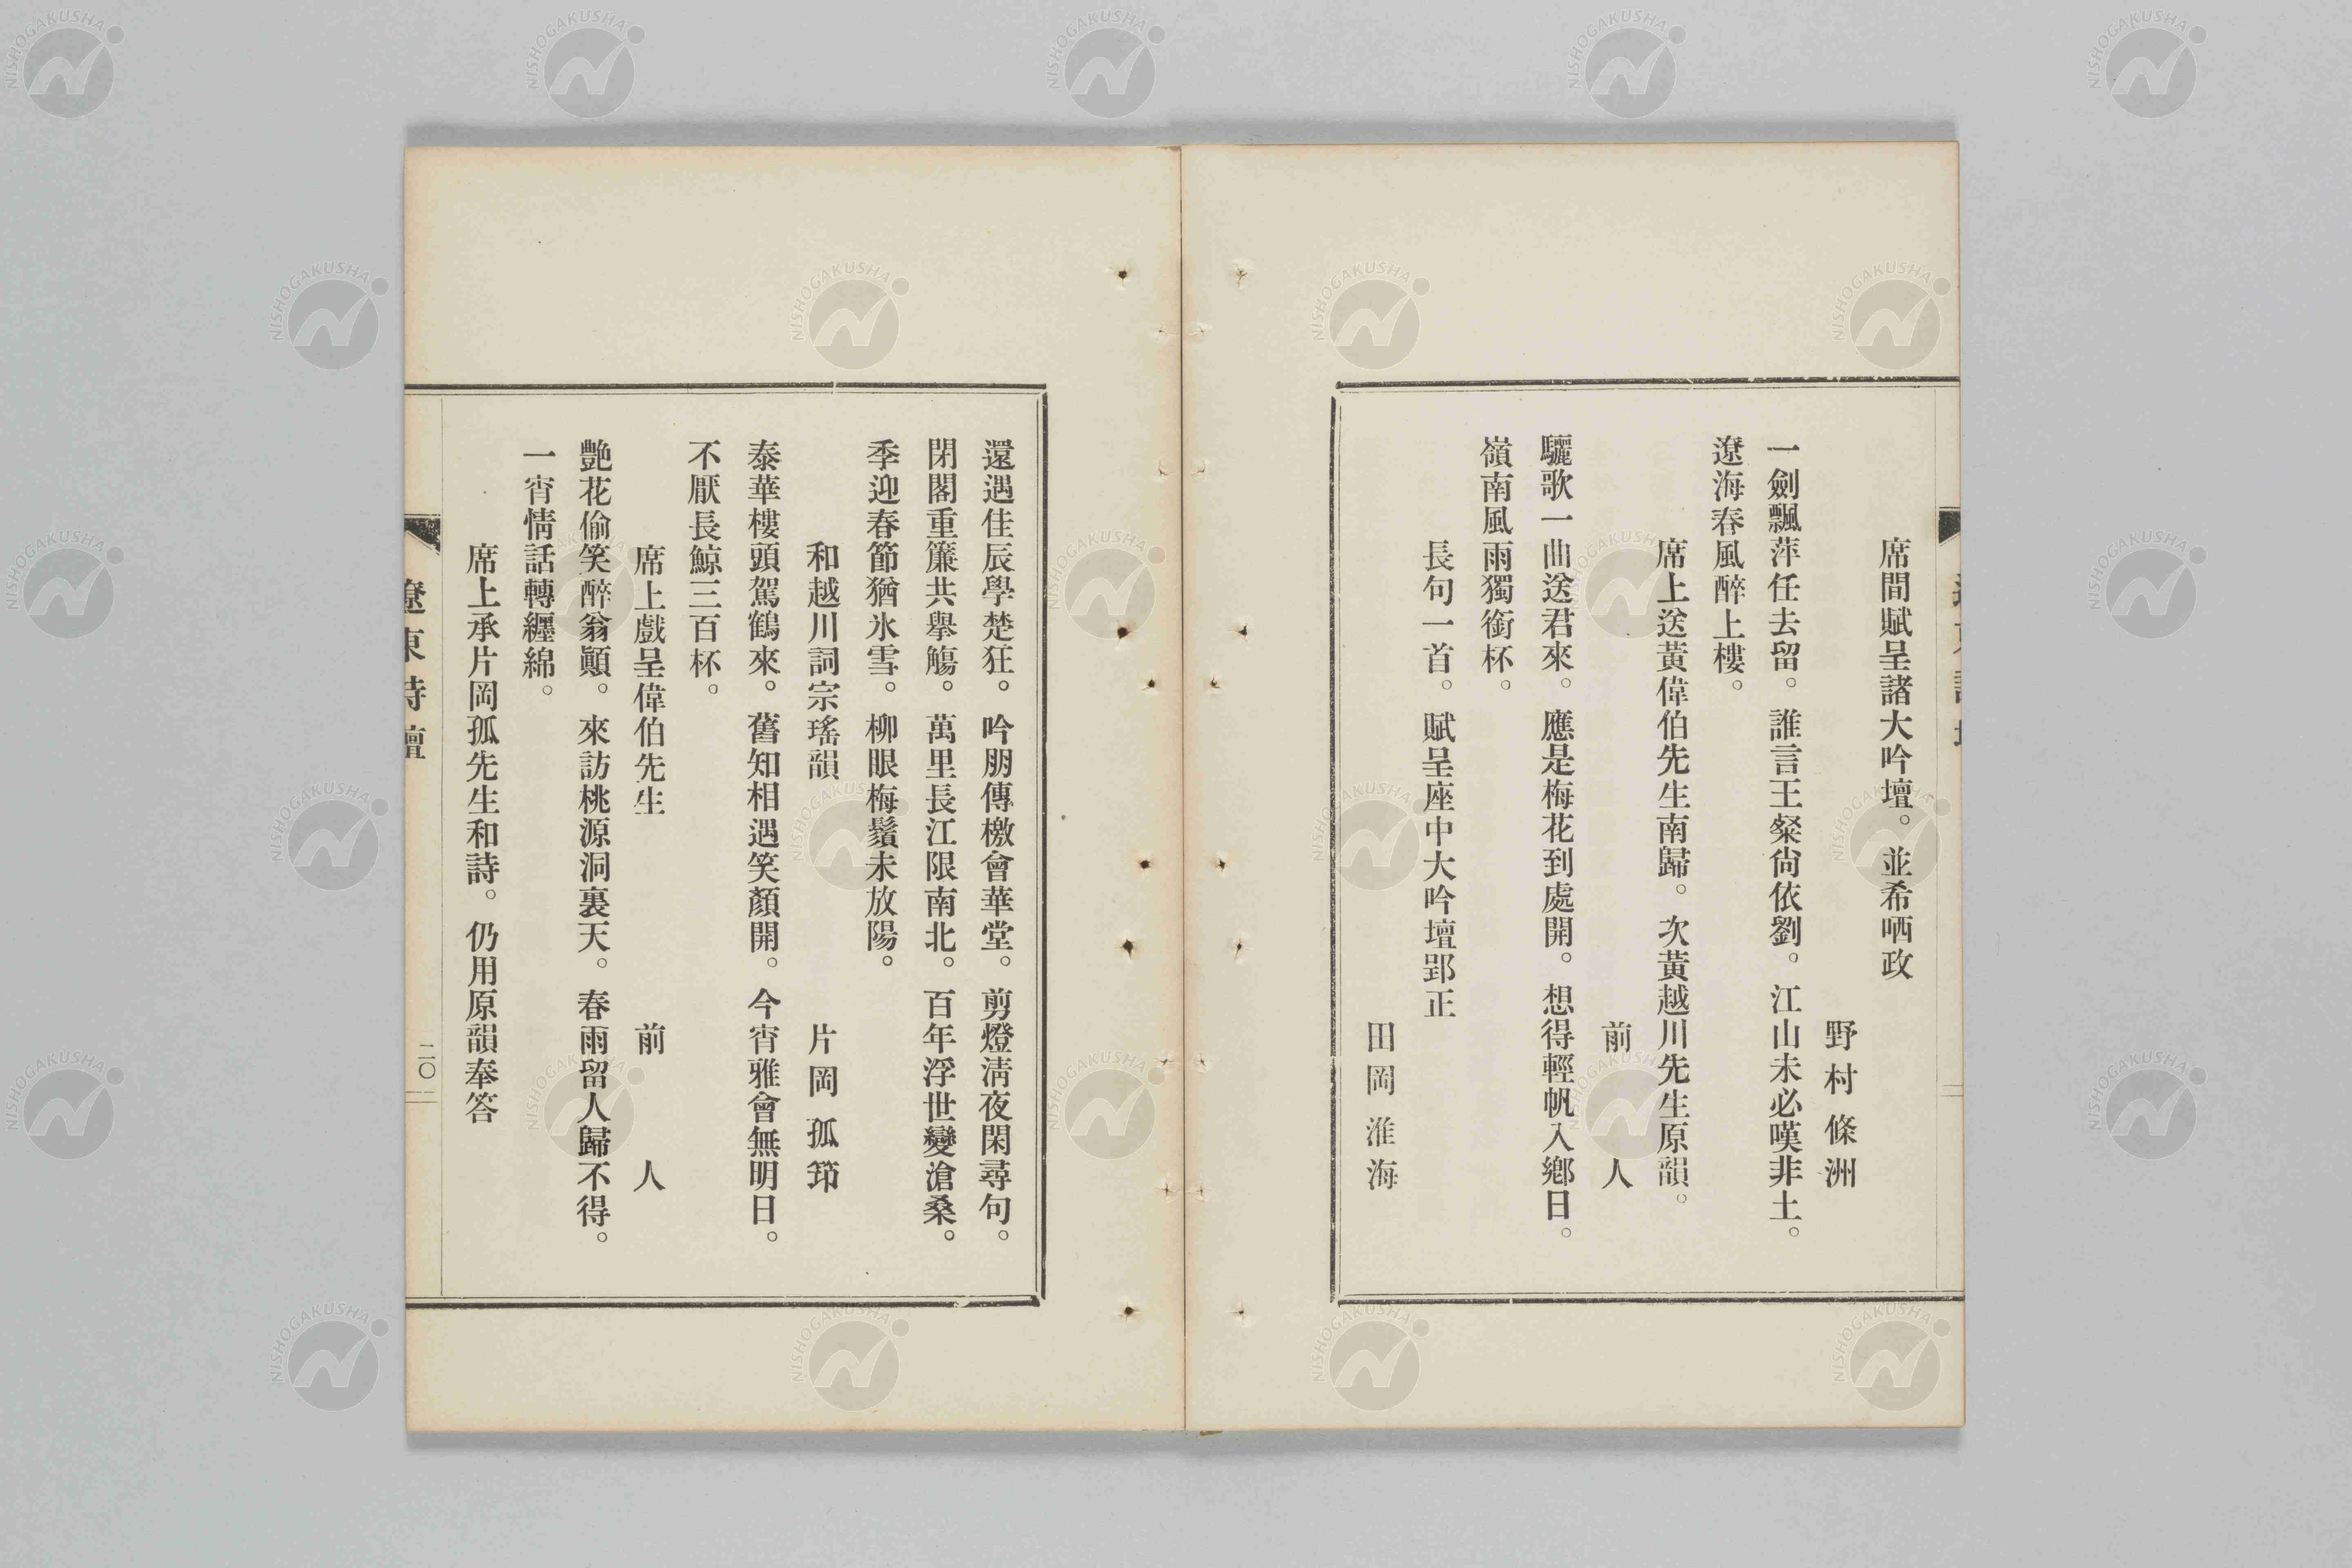 席間賦呈諸大吟壇。並希哂政
野村條洲
一劍飄萍任去留。誰言王粲尙依劉。江山未必嘆非土。
遼海春風醉上樓。
席上送黃偉伯先生南歸。次黃越川先生原韻。
前人
驪歌一曲送君來。應是梅花到處開。想得輕帆入鄕日。
嶺南風雨獨銜杯。
長句一首。賦呈座中大吟壇郢正
田岡淮海
還遇佳辰學楚狂。吟朋傳檄會華堂。剪燈淸夜閑尋句。
閉閣重簾共擧觴。萬里長江限南北。百年浮世變滄桑。
季迎春節猶氷雪。柳眼梅鬚未放陽。
和越川詞宗瑤韻
片岡孤筇
泰華樓頭駕鶴來。舊知相遇笑顏開。今宵雅會無明日。
不厭長鯨三百杯。
席上戲呈偉伯先生
前人
艷花偷笑醉翁顚。來訪桃源洞裏天。春雨留人歸不得。
一宵情話轉纏綿。
席上承片岡孤先生和詩。仍用原韻奉答
遼東詩壇
二〇
NISHOGAKUSHA